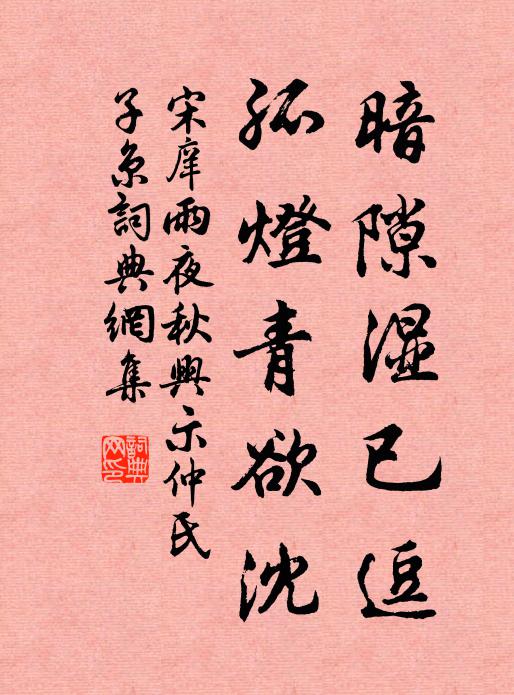 暗隙湿已逗
孤燈青欲沈
宋庠雨夜秋興示仲氏
子京詞典網集
詞典
网印